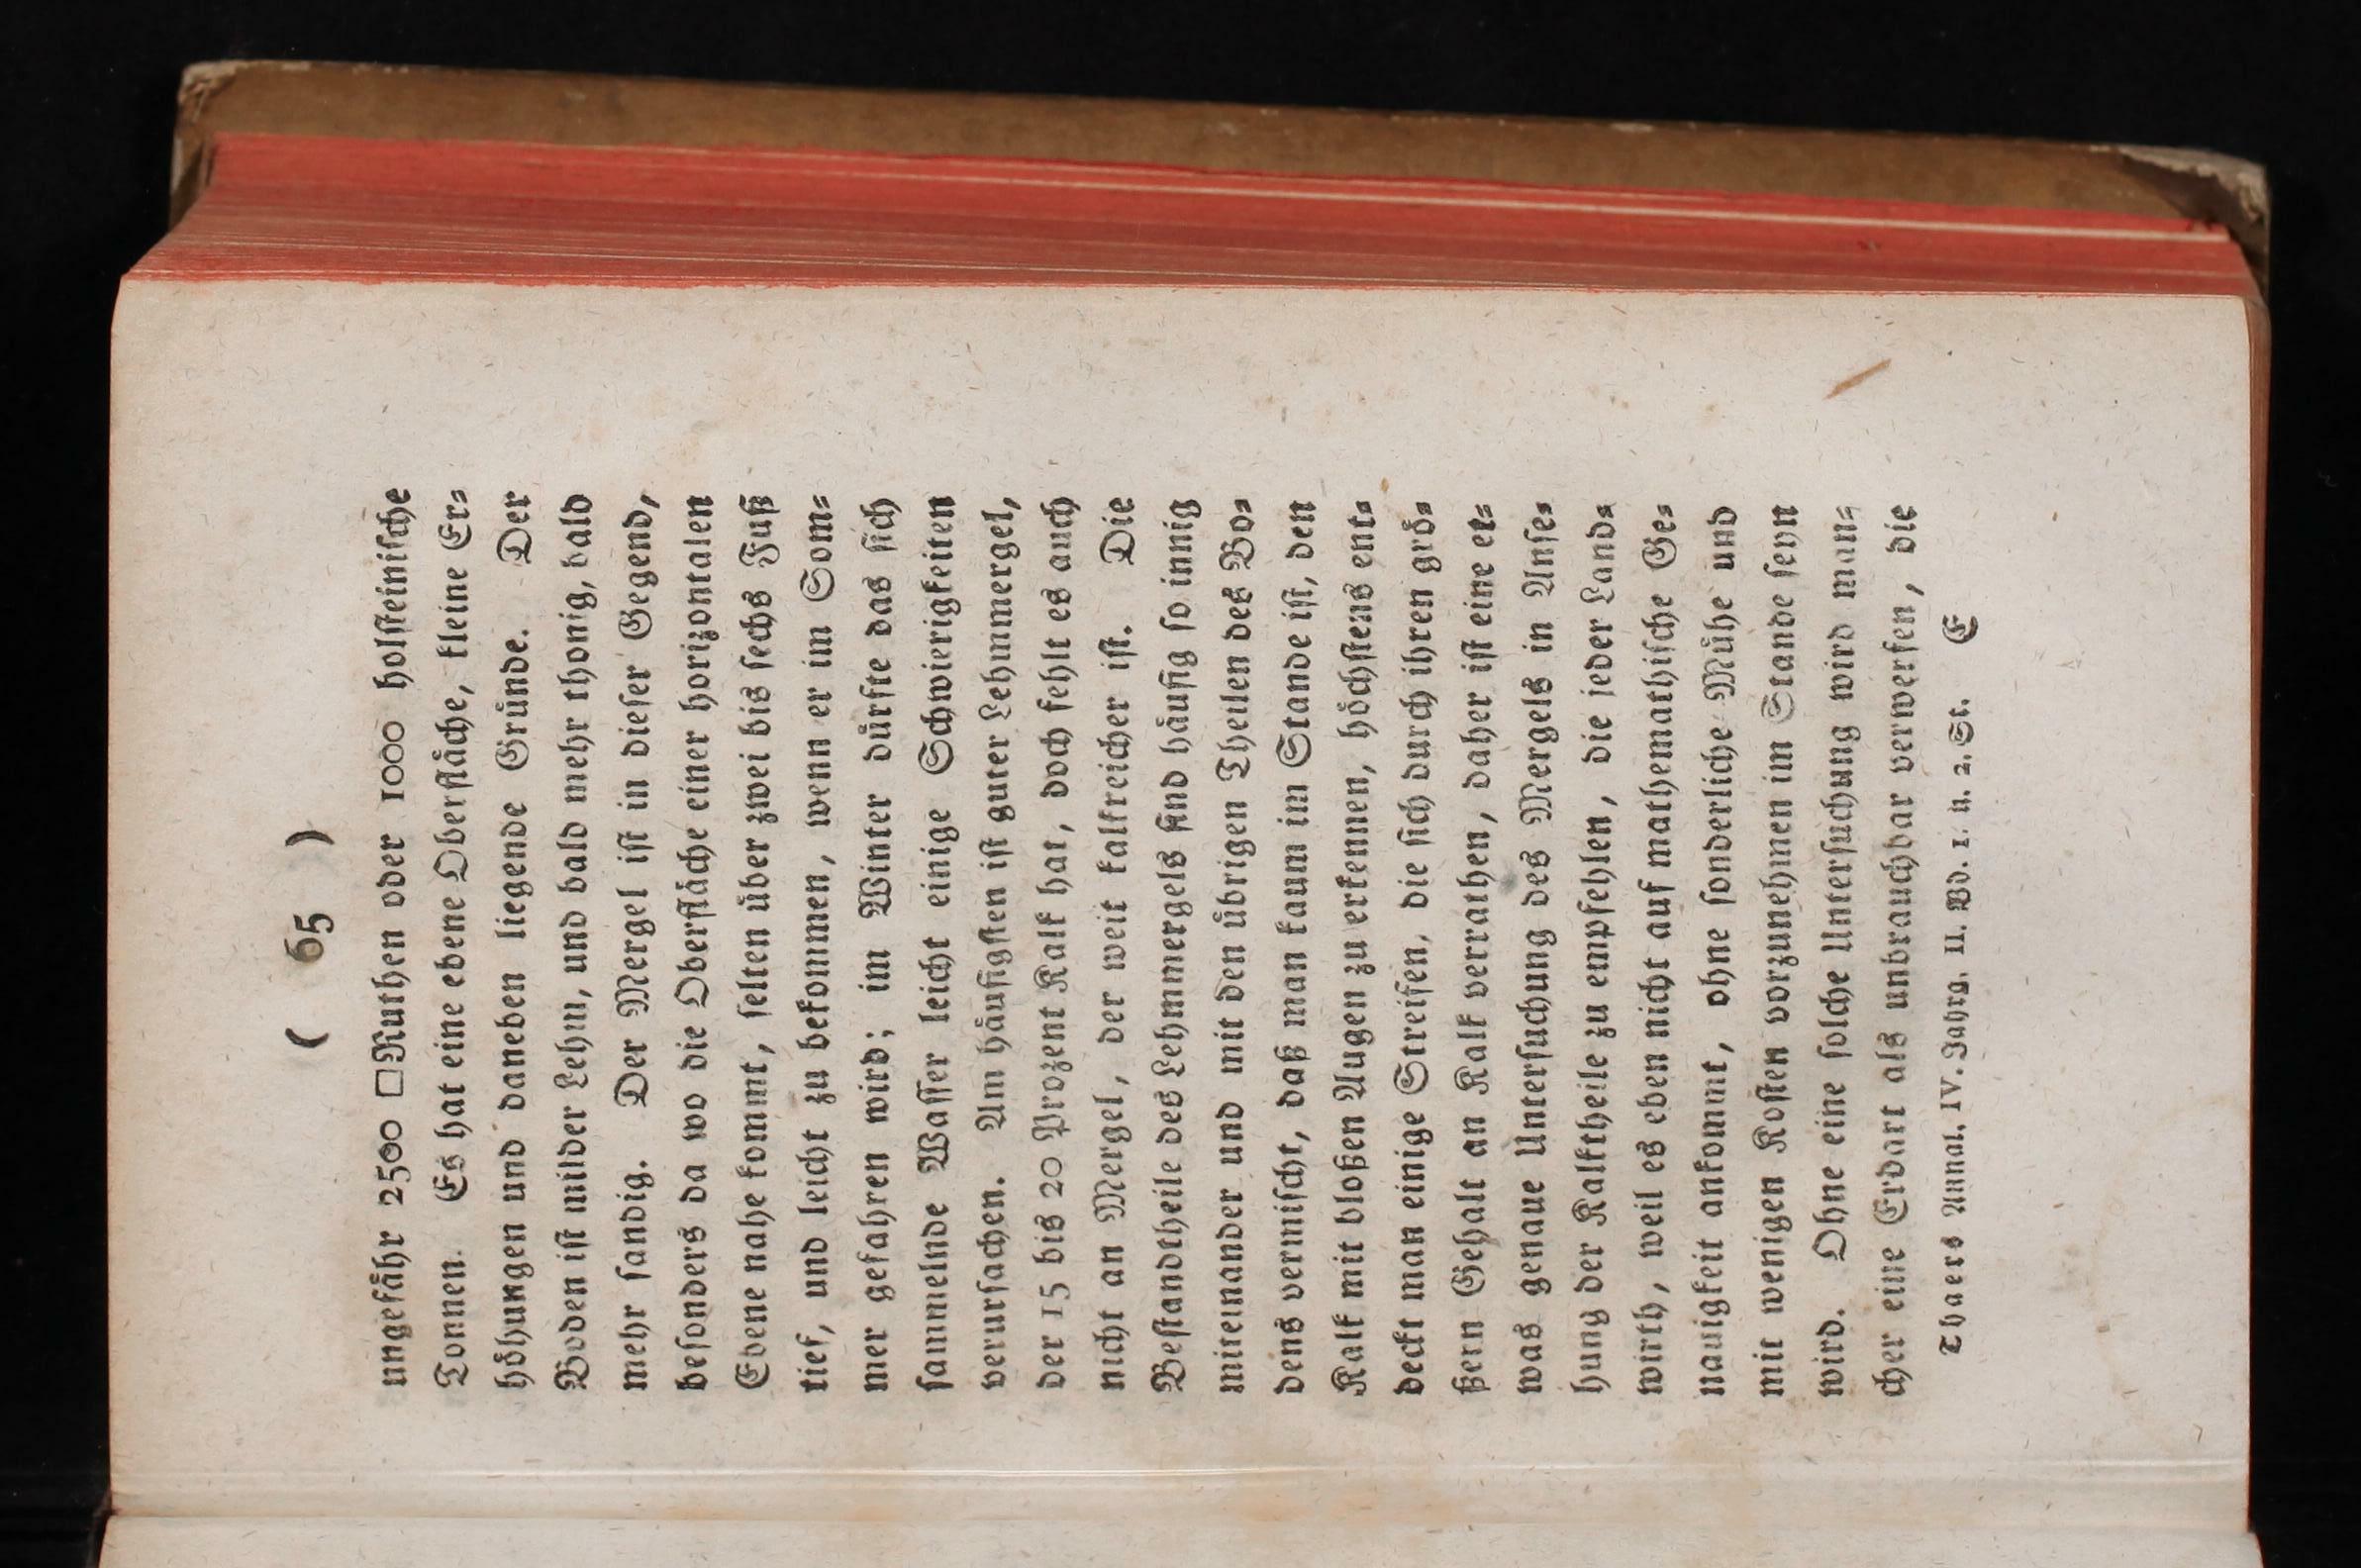 ( 65 )
ungefähr 2500 □Ruthen oder 1000 holsteinische
Tonnen. Es hat eine ebene Oberfläche, kleine Er-
höhungen und daneben liegende Gründe. Der
Boden ist milder Lehm, und bald mehr thonig, bald
mehr sandig. Der Mergel ist in dieser Gegend,
besonders da wo die Oberfläche einer horizontalen
Ebene nahe kommt, selten über zwei bis sechs Fuß
tief, und leicht zu bekommen, wenn er im Som-
mer gefahren wird; im Winter dürfte das sich
sammelnde Wasser leicht einige Schwierigkeiten
verursachen. Am häufigsten ist guter Lehmmergel,
der 15 bis 20 Prozent Kalk hat, doch fehlt es auch
nicht an Mergel, der weit kalkreicher ist. Die
Bestandtheile des Lehmmergels sind häufig so innig
miteinander und mit den übrigen Theilen des Bo-
dens vermischt, daß man kaum im Stande ist, den
Kalk mit bloßen Augen zu erkennen, höchstens ent-
deckt man einige Streifen, die sich durch ihren grö-
ßern Gehalt an Kalk verrathen, daher ist eine et-
was genaue Untersuchung des Mergels in Anse-
hung der Kalktheile zu empfehlen, die jeder Land-
wirth, weil es eben nicht auf mathemathische Ge-
nauigkeit ankommt, ohne sonderliche Mühe und
mit wenigen Kosten vorzunehmen im Stande seyn
wird. Ohne eine solche Untersuchung wird man-
cher eine Erdart als unbrauchbar verwerfen, die
Thaers Annal. IV. Jahrg. II. Bd. 1. u. 2. St. E